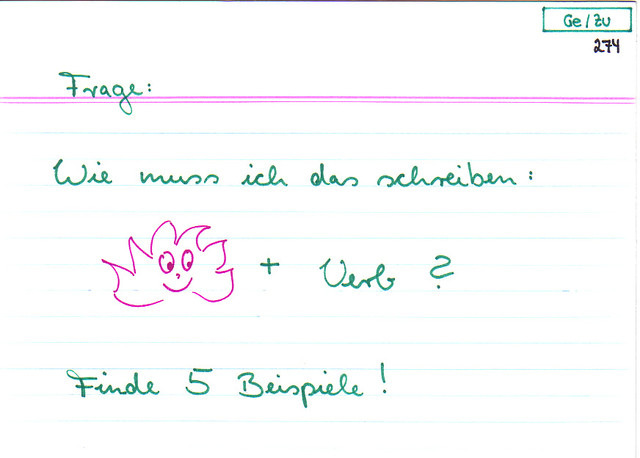 Ge/Zu
274
Frage:
Wie muss ich das schreiben:
+ Verb ?
Finde 5 Beispiele!